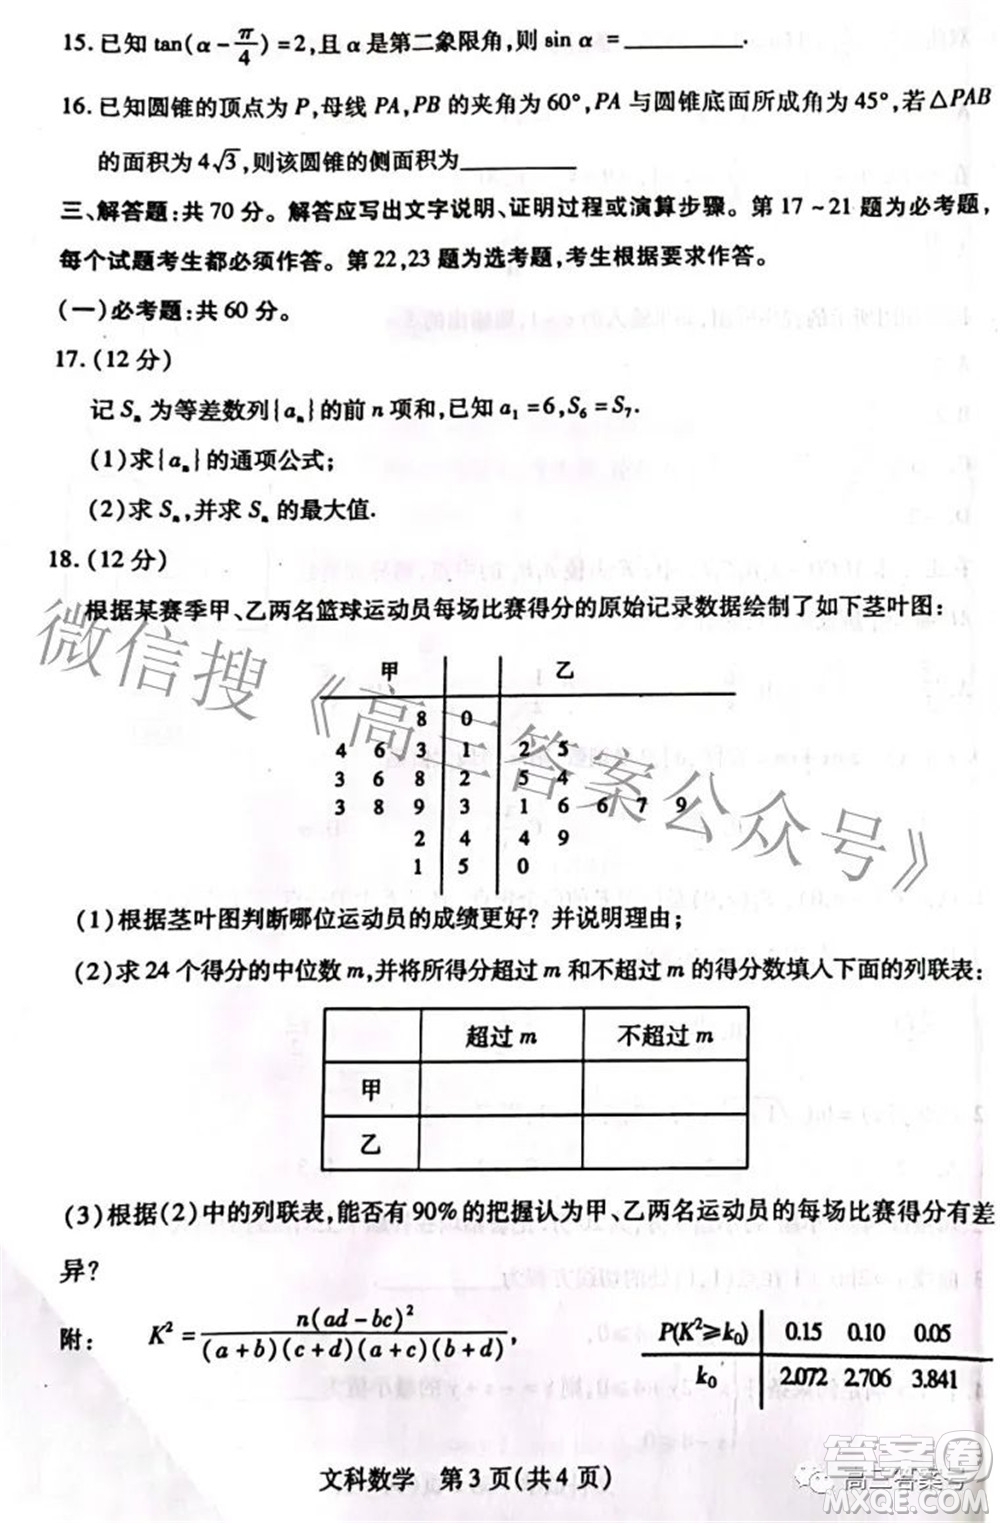 15. 已知 tan(α - π/4) = 2,且 α 是第二象限角,则 sin α = ________.
16. 已知圆锥的顶点为 P,母线 PA,PB 的夹角为 60°,PA 与圆锥底面所成角为 45°,若 △PAB
的面积为 4√3,则该圆锥的侧面积为________
三、解答题:共 70 分。解答应写出文字说明、证明过程或演算步骤。第 17 ~ 21 题为必考题,
每个试题考生都必须作答。第 22,23 题为选考题,考生根据要求作答。
(一)必考题:共 60 分。
17. (12 分)
记 Sₙ 为等差数列{aₙ}的前 n 项和,已知 a₁ = 6,S₆ = S₇.
(1)求{aₙ}的通项公式;
(2)求 Sₙ,并求 Sₙ 的最大值.
18. (12 分)
根据某赛季甲、乙两名篮球运动员每场比赛得分的原始记录数据绘制了如下茎叶图:
甲 乙
8 0
4 6 3 1 2 5
3 6 8 2 5 4
3 8 9 3 1 6 6 7 9
2 4 4 9
1 5 0
(1)根据茎叶图判断哪位运动员的成绩更好?并说明理由;
(2)求 24 个得分的中位数 m,并将所得分超过 m 和不超过 m 的得分数填入下面的列联表:
超过 m 不超过 m
甲
乙
(3)根据(2)中的列联表,能否有 90% 的把握认为甲、乙两名运动员的每场比赛得分有差
异?
附: K² = n(ad - bc)² / (a + b)(c + d)(a + c)(b + d),
P(K² ≥ k₀) 0.15 0.10 0.05
k₀ 2.072 2.706 3.841
文科数学 第 3 页(共 4 页)
微信搜《高三答案公众号》
高三答案号
答案圈
MXQE.COM